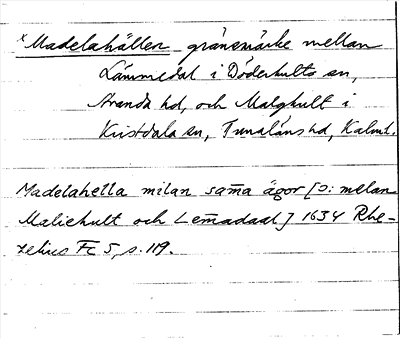 x Madelahällen gränsmärke mellan
Lämmedal i Döderhults sn,
Stranda hd, och Malghult i
Kristdala sn, Tunaläns hd, Kalm.
Madelahella milan sam̄a ägor [ɔ: melan
Maliehult och Lem̄adaal] 1634 Rhe-
zelius Fc 5, s. 119.